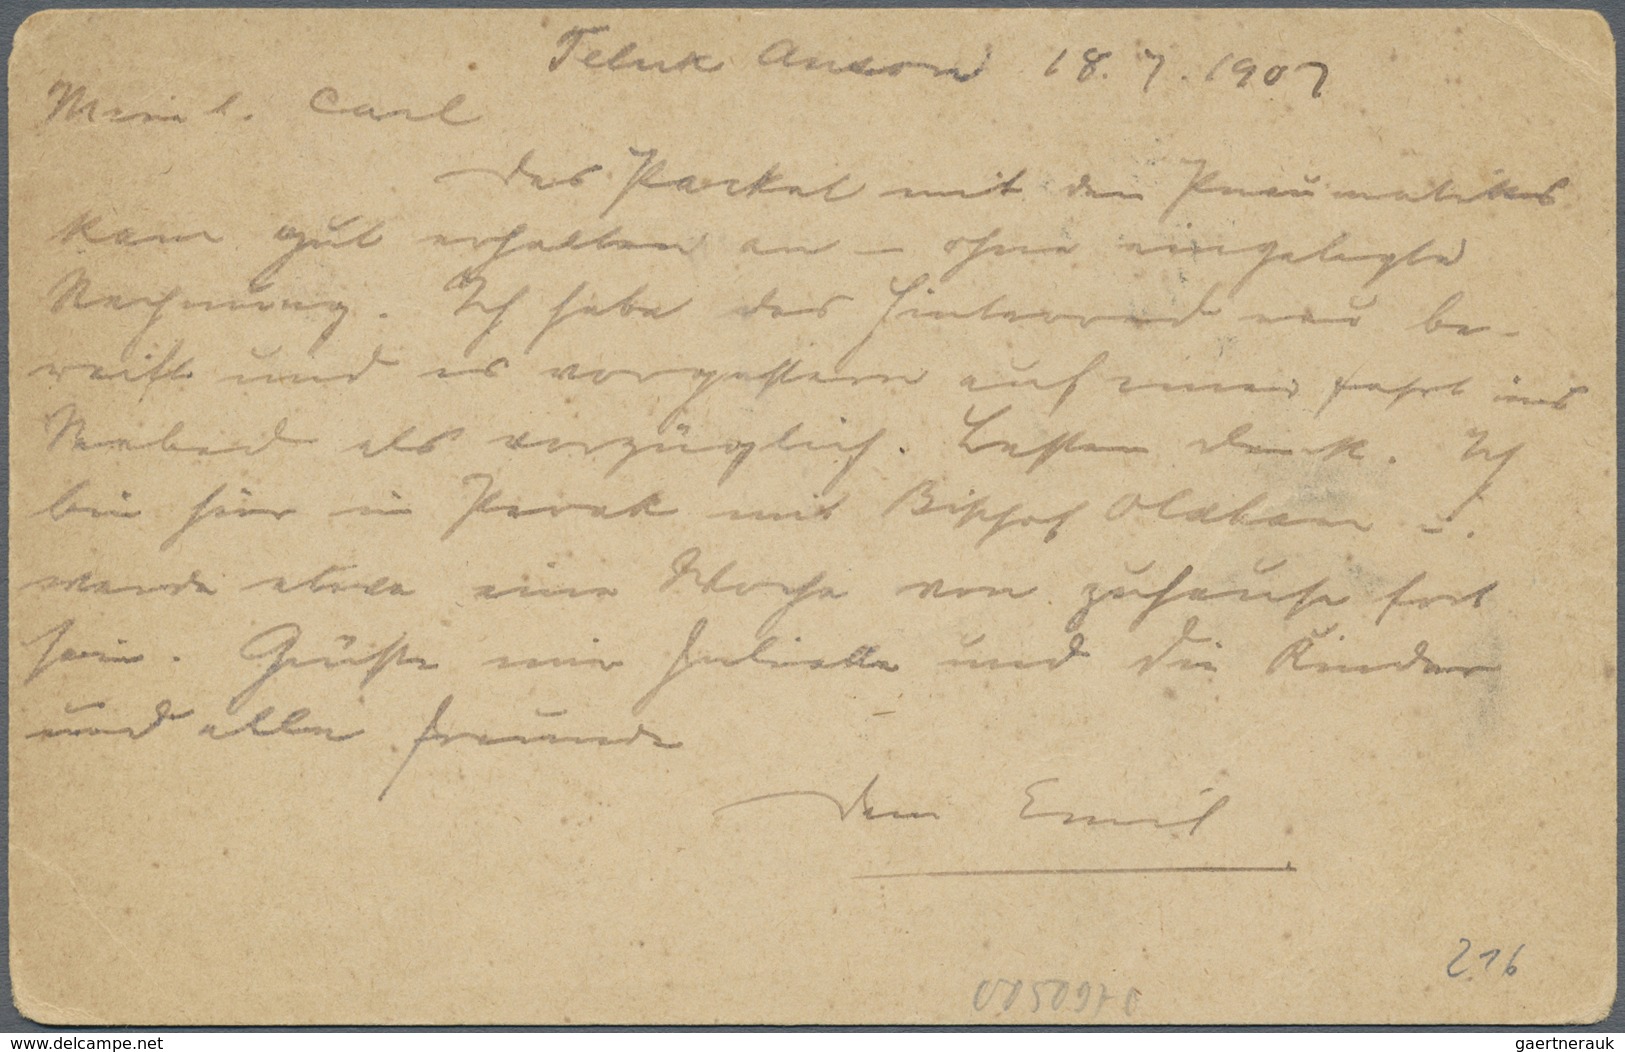 Teluk Anson 18.7.1907
Mein l. Carl
Das Packet mit den Pneumatiks
kam gut erhalten an – ohne eingelegte
Rechnung. Ich habe das Hinterrad neu be-
reift und es vorgestern auf einer Fahrt ins
als vorzüglich. Besten Dank. Ich
bin hier in Perak mit Bischof Oldham u.
werde etwa eine Woche von zuhause fort
sein. Grüsse mir Juliette und die Kinder
und alle Freunde
Dein Emil
216
www.delcampe.net
gaertnerauk